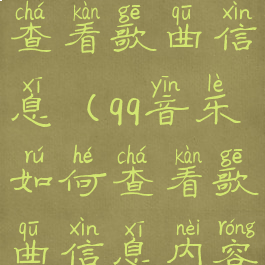 chá kàn gē qū xìn
查看歌曲信
xī yīn lè
息（qq音乐
rú hé chá kàn gē
如何查看歌
qū xìn xī nèi róng
曲信息内容